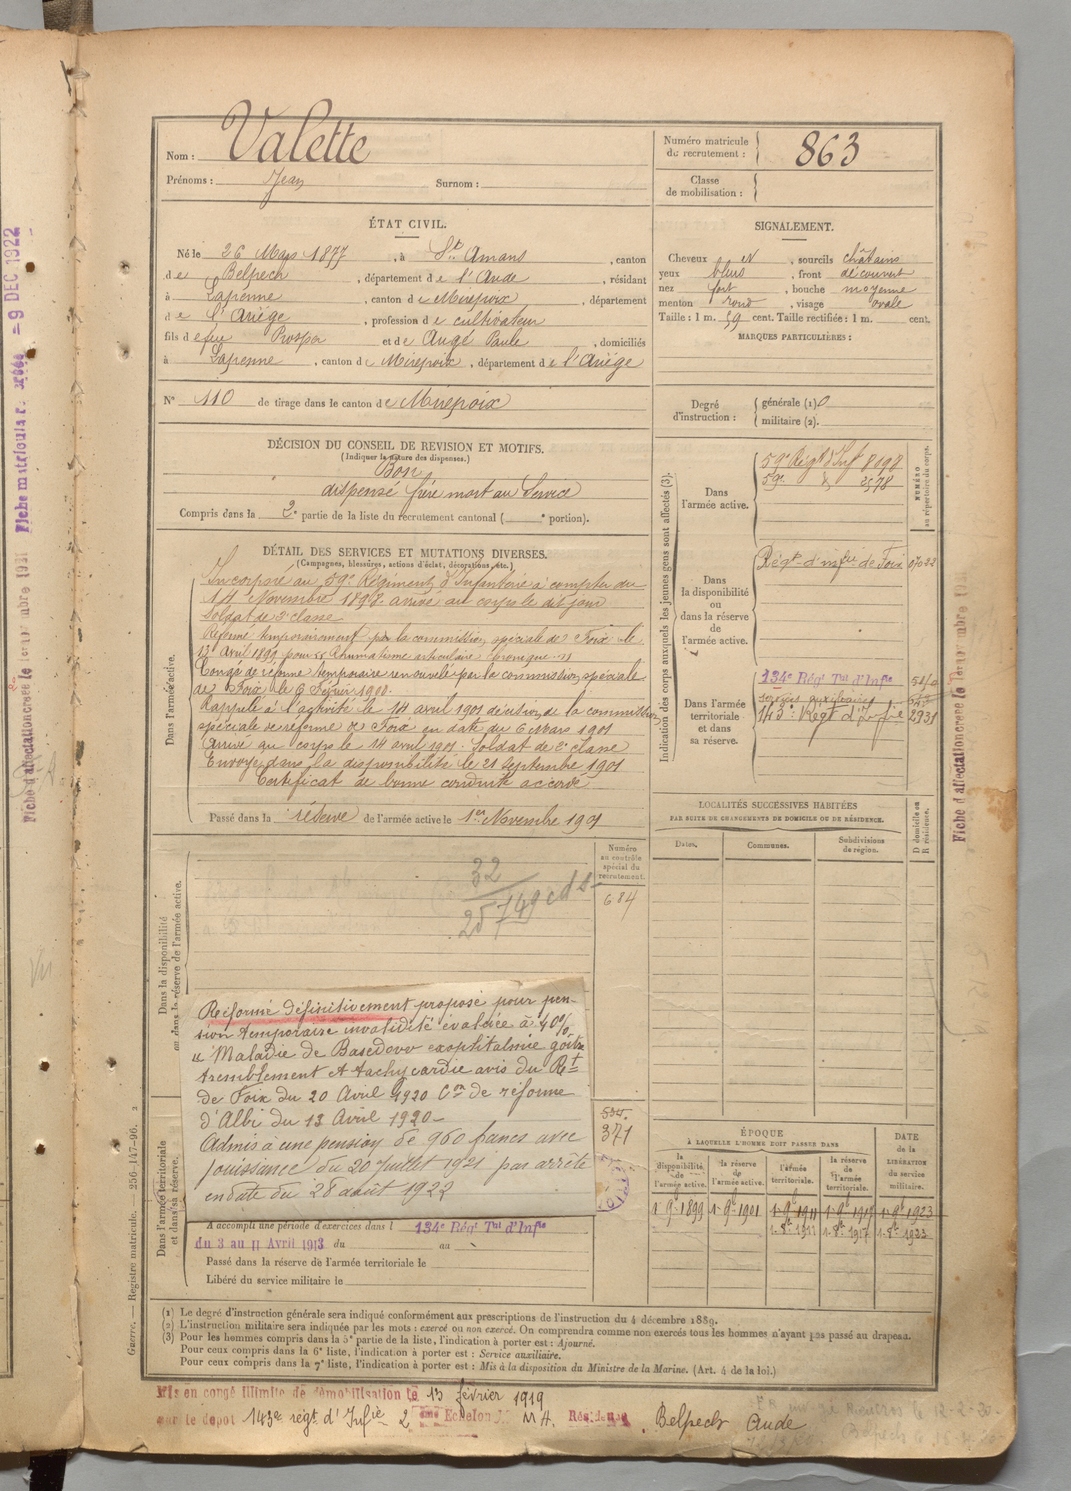 Nom : Valette
Prénoms : Jean Surnom :
Numéro matricule
du recrutement : 863
Classe
de mobilisation :
ÉTAT CIVIL.
Né le 26 Mars 1877, à St Amans, canton
de Belpech, département de l'Aude, résidant
à Lapenne, canton de Mirepoix, département
de l'Ariège, profession de cultivateur
fils de feu Prosper et de Auge Paule, domiciliés
à Lapenne, canton de Mirepoix, département de l'Ariège
N° 110 de tirage dans le canton de Mirepoix
SIGNALEMENT.
Cheveux et, sourcils châtains
yeux bleus, front découvert
nez fort, bouche moyenne
menton rond, visage ovale
Taille : 1 m. 59 cent. Taille rectifiée : 1 m. cent.
MARQUES PARTICULIÈRES :
Degré
d'instruction :
générale (1) 0
militaire (2).
DÉCISION DU CONSEIL DE REVISION ET MOTIFS.
(Indiquer la nature des dispenses.)
Bon
dispensé frère mort au Service
Compris dans la 2e partie de la liste du recrutement cantonal ( e portion).
DÉTAIL DES SERVICES ET MUTATIONS DIVERSES.
(Campagnes, blessures, actions d'éclat, décorations, etc.)
Dans l'armée active.
Incorporé au 59e Régiment d'Infanterie à compter du
14 Novembre 1898 arrivé au corps le dit jour
Soldat de 2e classe
Réformé temporairement par la commission spéciale de Foix le
13 avril 1899 pour "Rhumatisme articulaire chronique"
Congé de réforme temporaire renouvelé par la commission spéciale
de Foix le 6 1900.
Rappelé à l'activité le 14 avril 1901 décision de la commission
spéciale de réforme de Foix en date du 6 Mars 1901
Arrivé au corps le 14 avril 1901. Soldat de 2e classe
Envoyé dans la disponibilité le 21 Septembre 1901
Certificat de bonne conduite accordé
Passé dans la réserve de l'armée active le 1er Novembre 1901
Indication des corps auxquels les jeunes gens sont affectés (3).
NUMÉRO
au répertoire du corps.
Dans
l'armée active.
59e Régt d'Inf 8098
59e 2578
Dans
la disponibilité
ou
dans la réserve
de
l'armée active.
Régt d'infie de Foix 07022
Dans l'armée
territoriale
et dans
sa réserve.
134e Régt Tal d'Infie
services auxiliaires
143e Régt d'infie 2931
LOCALITÉS SUCCESSIVES HABITÉES
PAR SUITE DE CHANGEMENTS DE DOMICILE OU DE RÉSIDENCE.
Dates.
Communes.
Subdivisions
de région.
D domicile ou
R résidence.
Dans la disponibilité
ou dans la réserve de l'armée active.
Numéro
au contrôle
spécial du
recrutement.
684
32
25749 cds
Réformé définitivement proposé pour pen-
sion temporaire invalidité évaluée à 40%
"Maladie de Basedow exophtalmie goître
tremblement et tachycardie avis du Rt
de Foix du 20 Avril 1920 Con de réforme
d'Albi du 13 Avril 1920-
Admis à une pension de 960 francs avec
jouissance du 20 Juillet 1921 par arrêté
en date du 28 août 1922
Dans l'armée territoriale
et dans sa réserve.
534.
371
A accompli une période d'exercices dans l 134e Régt Tal d'Infie
du 3 au 11 Avril 1913 du au
Passé dans la réserve de l'armée territoriale le
Libéré du service militaire le
ÉPOQUE
À LAQUELLE L'HOMME DOIT PASSER DANS
la
disponibilité
de
l'armée active.
la réserve
de
l'armée active.
l'armée
territoriale.
la réserve
de
l'armée
territoriale.
DATE
de la
LIBÉRATION
du service
militaire.
1. 9b 1899 1. 9b 1901 1. 9b 1911 1. 9b 1917 1. 9b 1923
1. 8b 1911 1. 8b 1917 1. 8b 1923
(1) Le degré d'instruction générale sera indiqué conformément aux prescriptions de l'instruction du 4 décembre 1889.
(2) L'instruction militaire sera indiquée par les mots : exercé ou non exercé. On comprendra comme non exercés tous les hommes n'ayant pas passé au drapeau.
(3) Pour les hommes compris dans la 5e partie de la liste, l'indication à porter est : Ajourné.
Pour ceux compris dans la 6e liste, l'indication à porter est : Service auxiliaire.
Pour ceux compris dans la 7e liste, l'indication à porter est : Mis à la disposition du Ministre de la Marine. (Art. 4 de la loi.)
Guerre. — Registre matricule. 256-147-96. 2
Mis en congé illimité de démobilisation le 13 février 1919
par le dépôt 143e régt d'Infie 2 ème Echelon MH. Résidence Belpech Aude
Fiche matricule - 9 DEC 1922